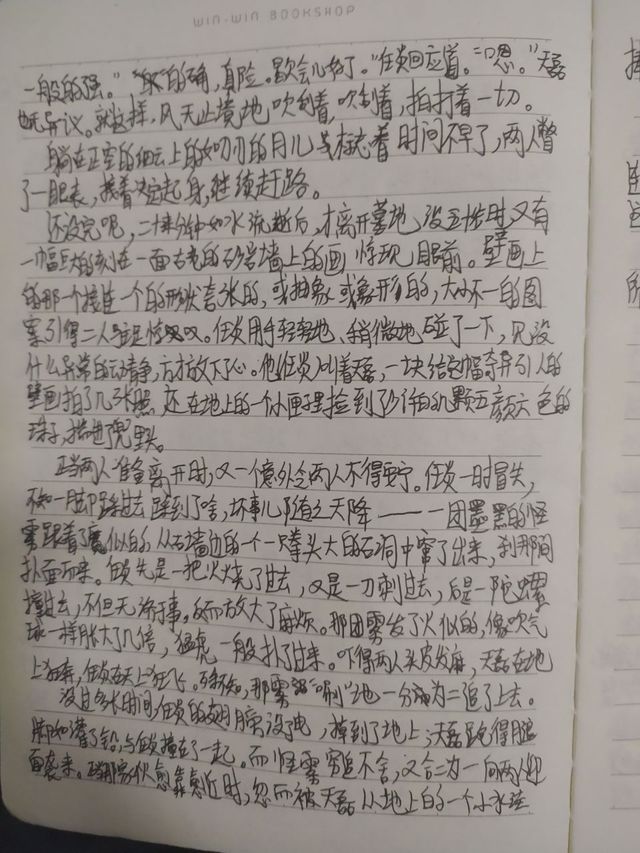 WIN-WIN BOOKSHOP
一般的强。”“的确,真险。歇会儿好了。”任炎回应道。“嗯。”天磊
也无异议。就这样,风无止境地吹刮着,吹刮着,拍打着一切。
躺在正空的细云上的如刀的月儿标志着时间不早了,两人瞥
了一眼表,接着决定起身,继续赶路。
还没完呢,二十来分钟如水流逝后,才离开墓地,没五步时又有
一幅巨大的刻在一面古老的砂岩墙上的画惊现眼前。壁画上
的那一个挨住一个的形状夸张的,或抽象或象形的,大小不一的图
案引得二人皆是惊叹。任炎用手轻轻地、稍微地碰了一下,见没
什么异常的动静,方才放下了心。他任炎叫着天磊,一块给这幅奇异引人的
壁画拍了几张照,还在地上的一个小匣子里捡到了少许的几颗五颜六色的
珠子,揣进了兜里头。
正当两人准备离开时,又一个意外令两人不得安宁。任炎一时冒失,
不知一脚踏过去踩到了啥,坏事儿随之天降——一团墨黑的怪
雾跟着了魔似的,从石墙边的一个拳头大的石洞中窜了出来,刹那间
扑面而来。任炎先是一把火烧了过去,又是一刀刺过去,后是一陀螺
撞过去,不但无济于事。反而放大了麻烦。那团雾发了火似的,像吹气
球一样胀大了几倍,猛虎一般扑了过来。吓得两人头皮发麻,天磊在地
上狂奔,任炎在天上狂飞。那雾“唰”地一分为二追了上去。
没过多长时间,任炎的翅膀没了电,掉到了地上;天磊跑得腿
脚如灌了铅,与任炎撞在了一起。而怪雾穷追不舍,又合二为一向两人迎
面袭来。正当那家伙愈靠愈近时,忽而被天磊从地上的一个小水洼